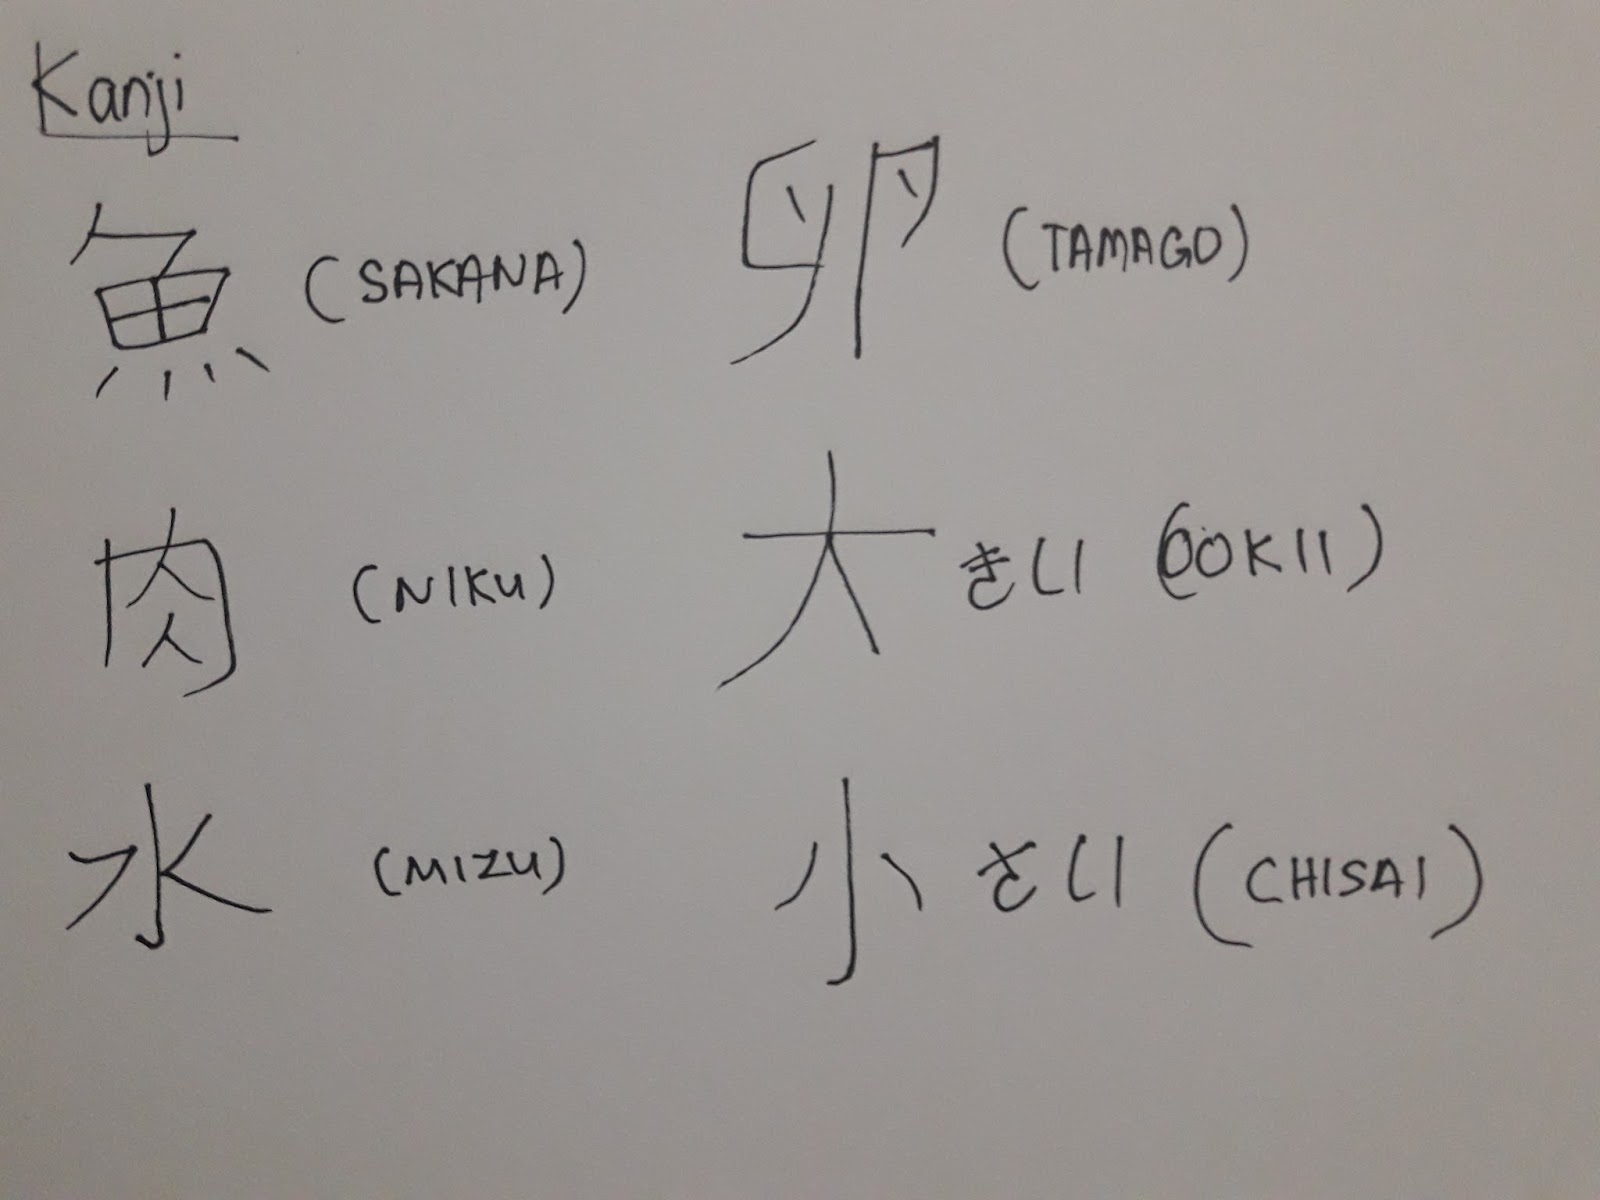 Kanji
魚 (SAKANA)
卵 (TAMAGO)
肉 (NIKU)
大きい (OOKII)
水 (MIZU)
小さい (CHISAI)